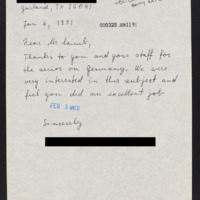 Garland, TX 75041
Jan 6, 1991
000323 JAN11 91
Dear Mr Lamb,
Thanks to you and your staff for
the series on Germany. We were
very interested in this subject and
feel you did an excellent job
FEB 5 RECD
Sincerely